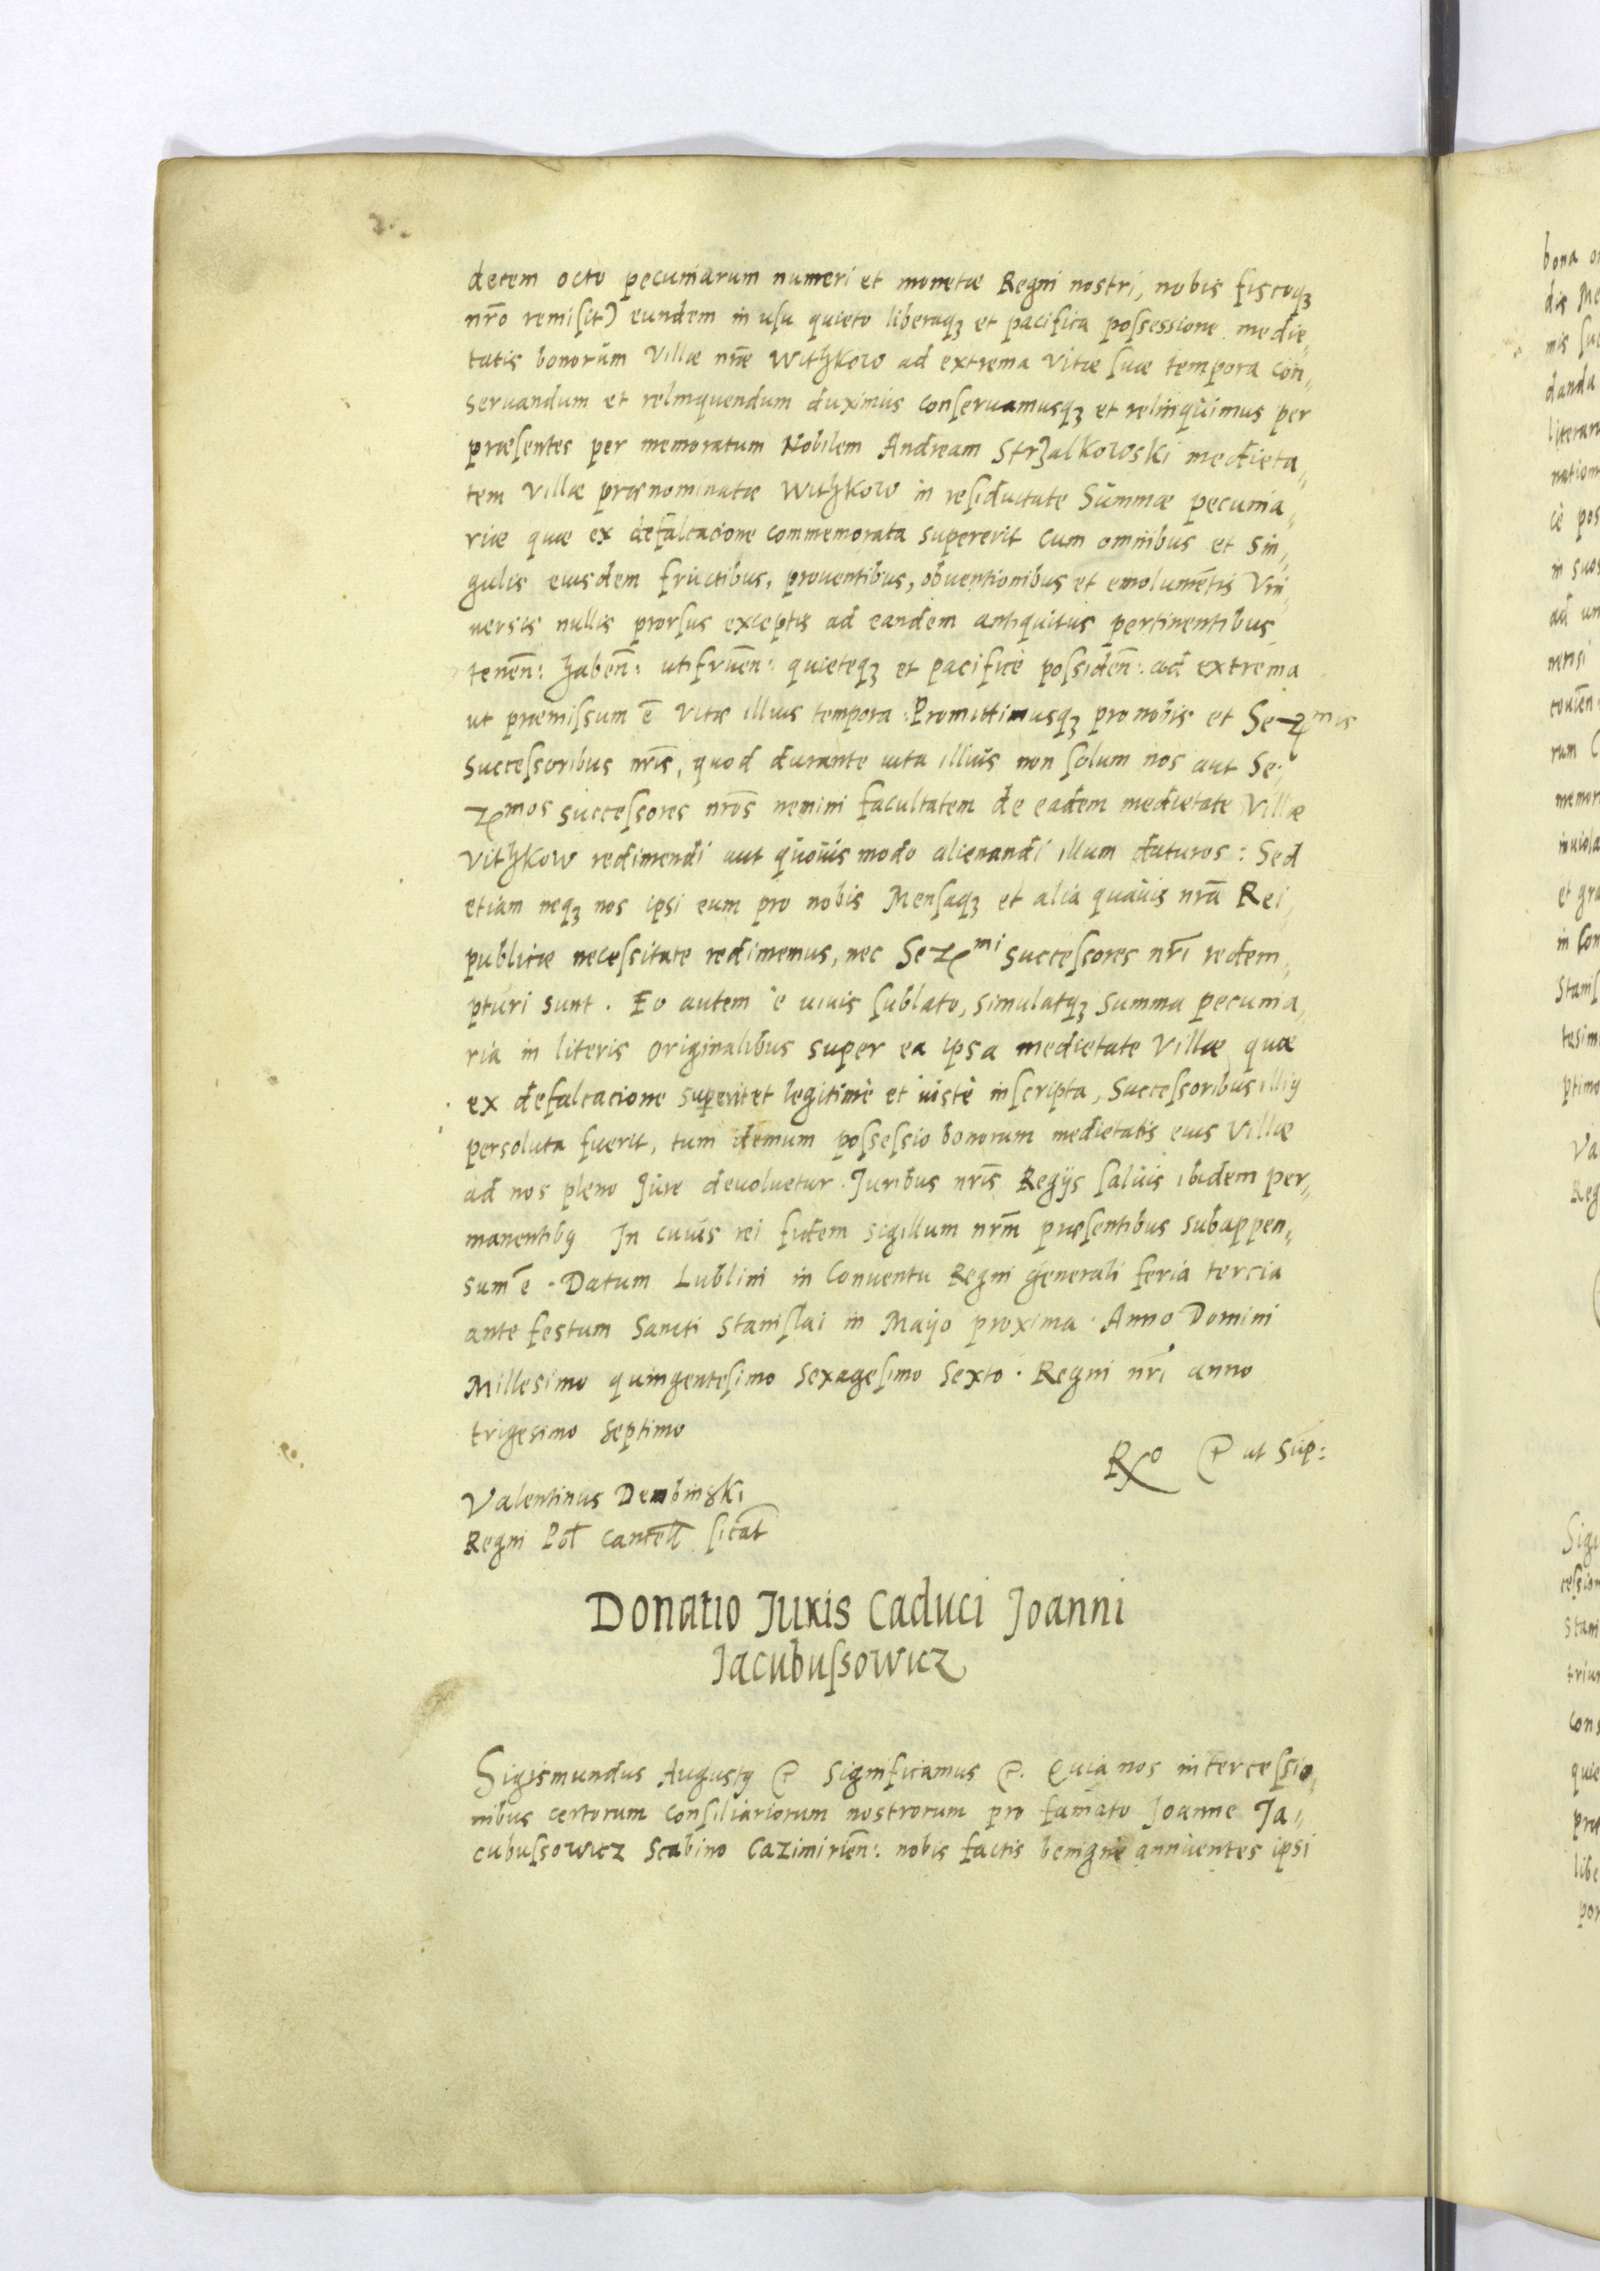 decem octo pecuniarum numeri et monetæ Regni nostri, nobis fiscoqꝫ
nr̃o remisit) eundem in usu quieto liberaqꝫ et pacifica possessione medie„
tatis bonorum Villæ nr̃æ Withkow ad extrema Vitæ suæ tempora con„
seruandum et relinquendum duximus conseruamusqꝫ et relinquimus per
præsentes per memoratum Nobilem Andream Strzalkowski medieta„
tem Villæ prænominatæ Withkow in residuitate Summæ pecunia„
riæ quæ ex defalcacione commemorata supererit cum omnibus et sin„
gulis eiusdem fructibus, prouentibus, obuentionibus et emolumẽtis Vni„
uersis nullis prorsus exceptis ad eandem antiquitus pertinentibus
tenen̄: haben̄: utifruen̄: quieteqꝫ et pacificè possiden̄: ad extrema
ut præmissum ē Vitæ illius tempora. Promittimusqꝫ pro nobis et Seꝛ mis
Successoribus nr̃is, quod durante uita illius non solum nos aut Se„
ꝛ mos successores nr̃os nemini facultatem de eadem medietate Villæ
Vithkow redimendi aut quouis modo alienandi illum daturos: Sed
etiam neqꝫ nos ipsi eum pro nobis Mensaqꝫ et alia quauis nr̃a Rei„
publicæ necessitate redimemus, nec Seꝛ mi successores nr̃i redem„
pturi sunt. Eo autem è uiuis sublato, simulatqꝫ summa pecunia„
ria in literis originalibus super ea ipsa medietate Villæ quæ
ex defalcacione superit et legitimè et iustè inscripta, Successoribus illiꝰ
persoluta fuerit, tum demum possessio bonorum medietatis eius Villæ
ad nos pleno Jure deuoluetur. Juribus nr̃is Regijs saluis ibidem per„
manentibꝰ In cuius rei fidem sigillum nr̃m præsentibus subappen„
sum ē. Datum Lublini in Conuentu Regni generali feria tercia
ante festum Sancti Stanislai in Maijo proxima. Anno Domini
Millesimo quingentesimo sexagesimo sexto. Regni nr̃i anno
trigesimo septimo
Rº ut Sup:
Valentinus Dembinski
Regni Pol Cancell
Donatio Juris Caduci Joanni
Jacubussowicz
Sigismundus Augustꝰ Significamus Quia nos intercessio„
nibus certorum consiliariorum nostrorum pro famato Joanne Ja„
cubussowicz Scabino Cazimirien̄: nobis factis benignè annuentes ipsi